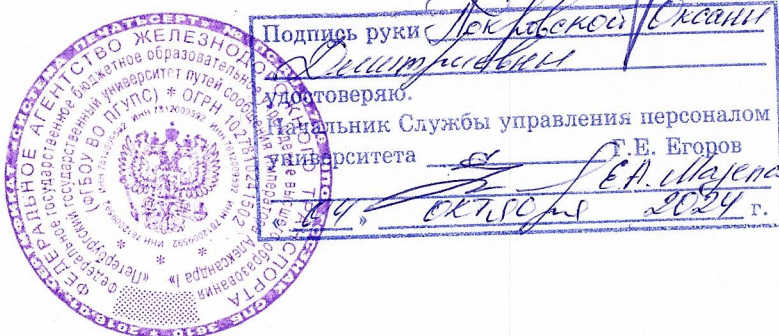 Подпись руки Покровской Оксаны
Дмитриевны
удостоверяю.
Начальник Службы управления персоналом
университета Г.Е. Егоров
Е.А. Мазепа
"04" октября 2024 г.
ФЕДЕРАЛЬНОЕ АГЕНТСТВО ЖЕЛЕЗНОДОРОЖНОГО ТРАНСПОРТА
Федеральное государственное бюджетное образовательное учреждение высшего образования
«Петербургский государственный университет путей сообщения Императора Александра I»
(ФГБОУ ВО ПГУПС) * ОГРН 1027810241502
ИНН 7812009592